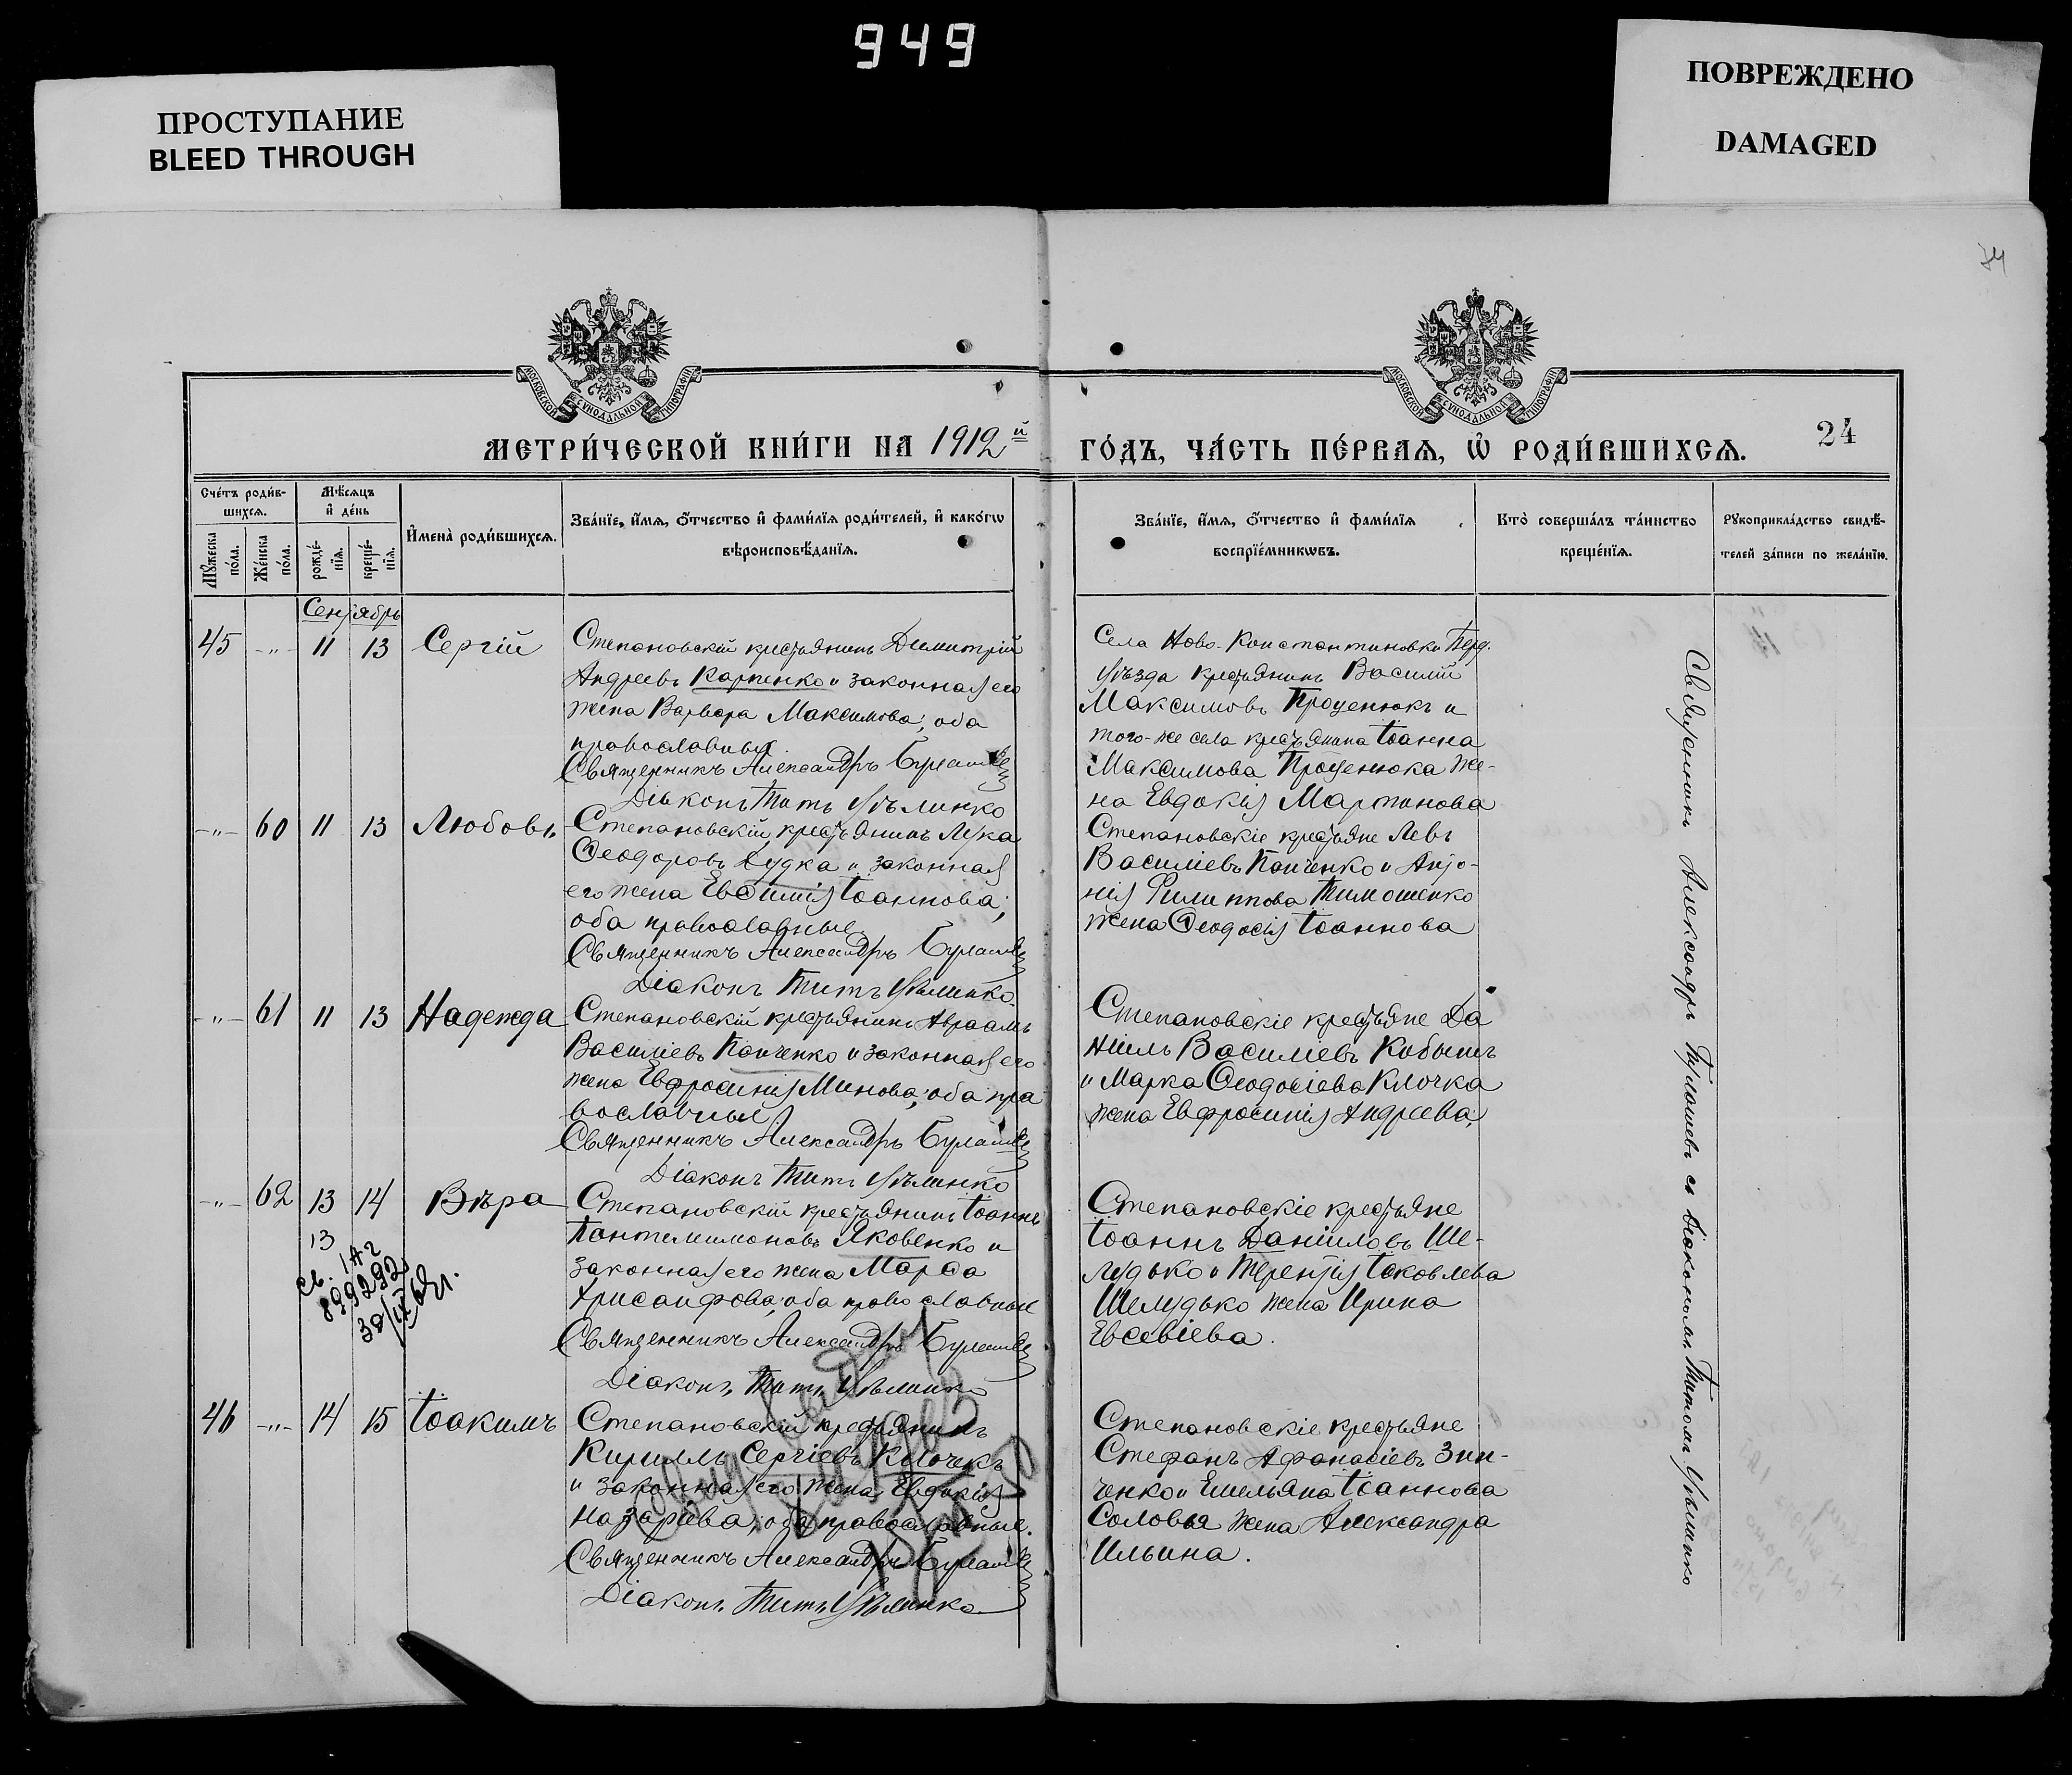 949
ПРОСТУПАНИЕ
BLEED THROUGH
ПОВРЕЖДЕНО
DAMAGED
МОСКОВСКОЙ СѴНОДАЛЬНОЙ ТИПОГРАФІИ
МОСКОВСКОЙ СѴНОДАЛЬНОЙ ТИПОГРАФІИ
МЕТРИ́ЧЕСКОЙ КНИ́ГИ НА 1912й ГО́ДЪ, ЧА́СТЬ ПЕ́РВАѦ, Ѡ҆ РОДИ́ВШИХСѦ. 24
Сче́тъ роди́в-
шихсѧ.
Мꙋ́жеска по́ла.
Же́нска по́ла.
Мѣ́сѧцъ
и҆ де́нь
рожде́-
нїѧ.
креще́-
нїѧ.
И҆мена̀ роди́вшихсѧ.
Зва́нїе, и҆́мѧ, о҆́тчество и҆ фами́лїѧ роди́телей, и҆ како́гѡ
вѣроисповѣ́данїѧ.
Зва́нїе, и҆́мѧ, о҆́тчество и҆ фами́лїѧ
воспрїе́мникѡвъ.
Кто̀ соверша́лъ та́инство
креще́нїѧ.
Рꙋкоприкла́дство свидѣ́-
телей за́писи по жела́нїю.
Сентябрь
45 -"- 11 13 Сергій
Степановскій крестьянинъ Димитрій
Андреевъ Карпенко и законная его
жена Варвара Максимова; оба
православные.
Священникъ Александръ
Діаконъ Титъ
Села Ново-Константиновки Берд.
уѣзда крестьянинъ Василій
Максимовъ Проценюкъ и
того-же села крестьянина Іоанна
Максимова Проценюка же-
на Евдокія Мартинова
-"- 60 11 13 Любовь
Степановскій крестьянинъ Лука
Ѳеодоровъ Дудка и законная
его жена Евѳимія Іоаннова;
оба православные.
Священникъ Александръ
Діаконъ Титъ
Степановскіе крестьяне Левъ
Василіевъ Панченко и Анто-
нія Филиппова Тимошенко
жена Ѳеодосія Іоаннова
-"- 61 11 13 Надежда
Степановскій крестьянинъ Авраамъ
Василіевъ Панченко и законная его
жена Евфросинія Минова; оба пра
вославные
Священникъ Александръ
Діаконъ Титъ
Степановскіе крестьяне Да
ніилъ Василіевъ
и Марка Ѳеодосіева Клочка
жена Евфросинія Андреева.
-"- 62 13 14 Вѣра
13
св. IАГ
899292
Степановскій крестьянинъ Іоаннъ
Пантелимоновъ Яковенко и
законная его жена Марѳа
Хрисанфова; оба православные
Священникъ Александръ
Діаконъ Титъ
Степановскіе крестьяне
Іоаннъ Даніиловъ Ше-
лудько и Терентія Іаковлева
Шелудько жена Ирина
Евсевіева.
46 -"- 14 15 Іоакимъ
Степановскій крестьянинъ
Кириллъ Сергіевъ Клочекъ
и законная его жена Евдокія
Назаріева; оба православные.
Священникъ Александръ
Діаконъ Титъ
Степановскіе крестьяне
Стефанъ Афанасіевъ Зин-
ченко и Емельяна Іоаннова
Соловья жена Александра
Ильина.
Священникъ Александръ съ діакономъ Титомъ